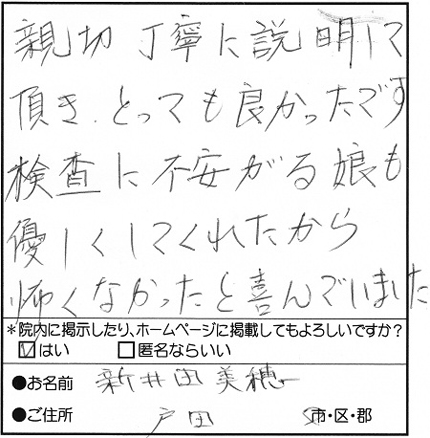 親切 丁寧に説明して
頂き、とっても良かったです
検査に不安がる娘も
優しくしてくれたから
怖くなかったと喜んでいました
*院内に掲示したり、ホームページに掲載してもよろしいですか?
☑はい □匿名ならいい
●お名前 新井田美穂
●ご住所 戸田 市・区・郡